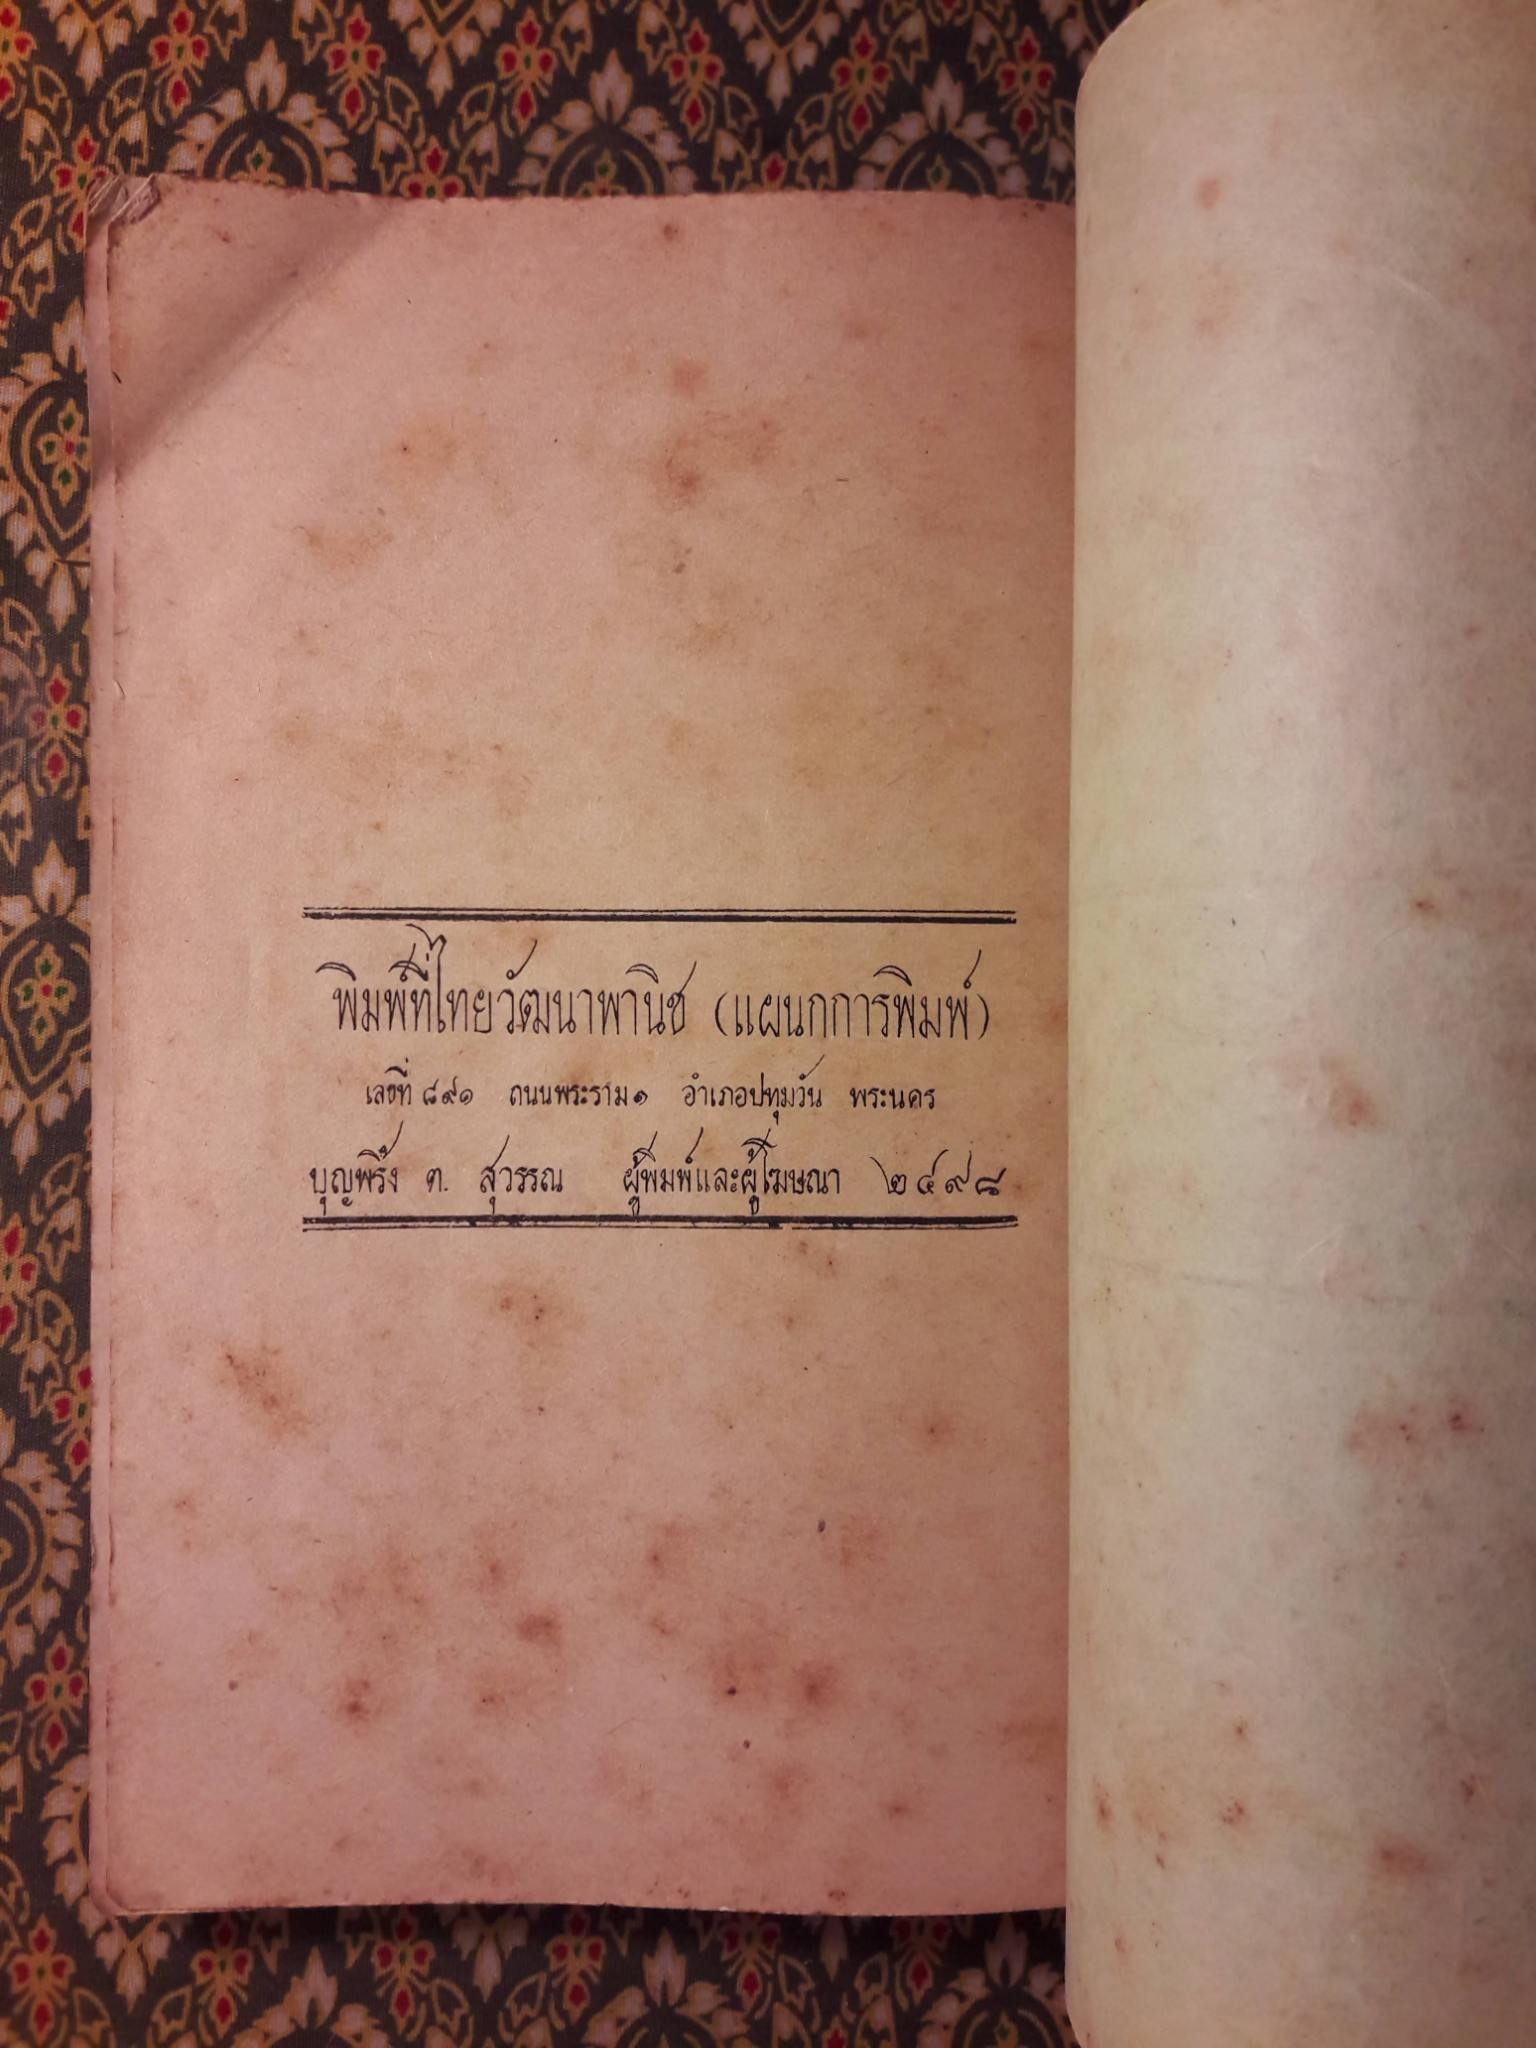 พิมพ์ที่ไทยวัฒนาพานิช (แผนกการพิมพ์)
เลขที่ ๘๙๑ ถนนพระราม๑ อำเภอปทุมวัน พระนคร
บุญพริ้ง ต. สุวรรณ ผู้พิมพ์และผู้โฆษณา ๒๔๙๘